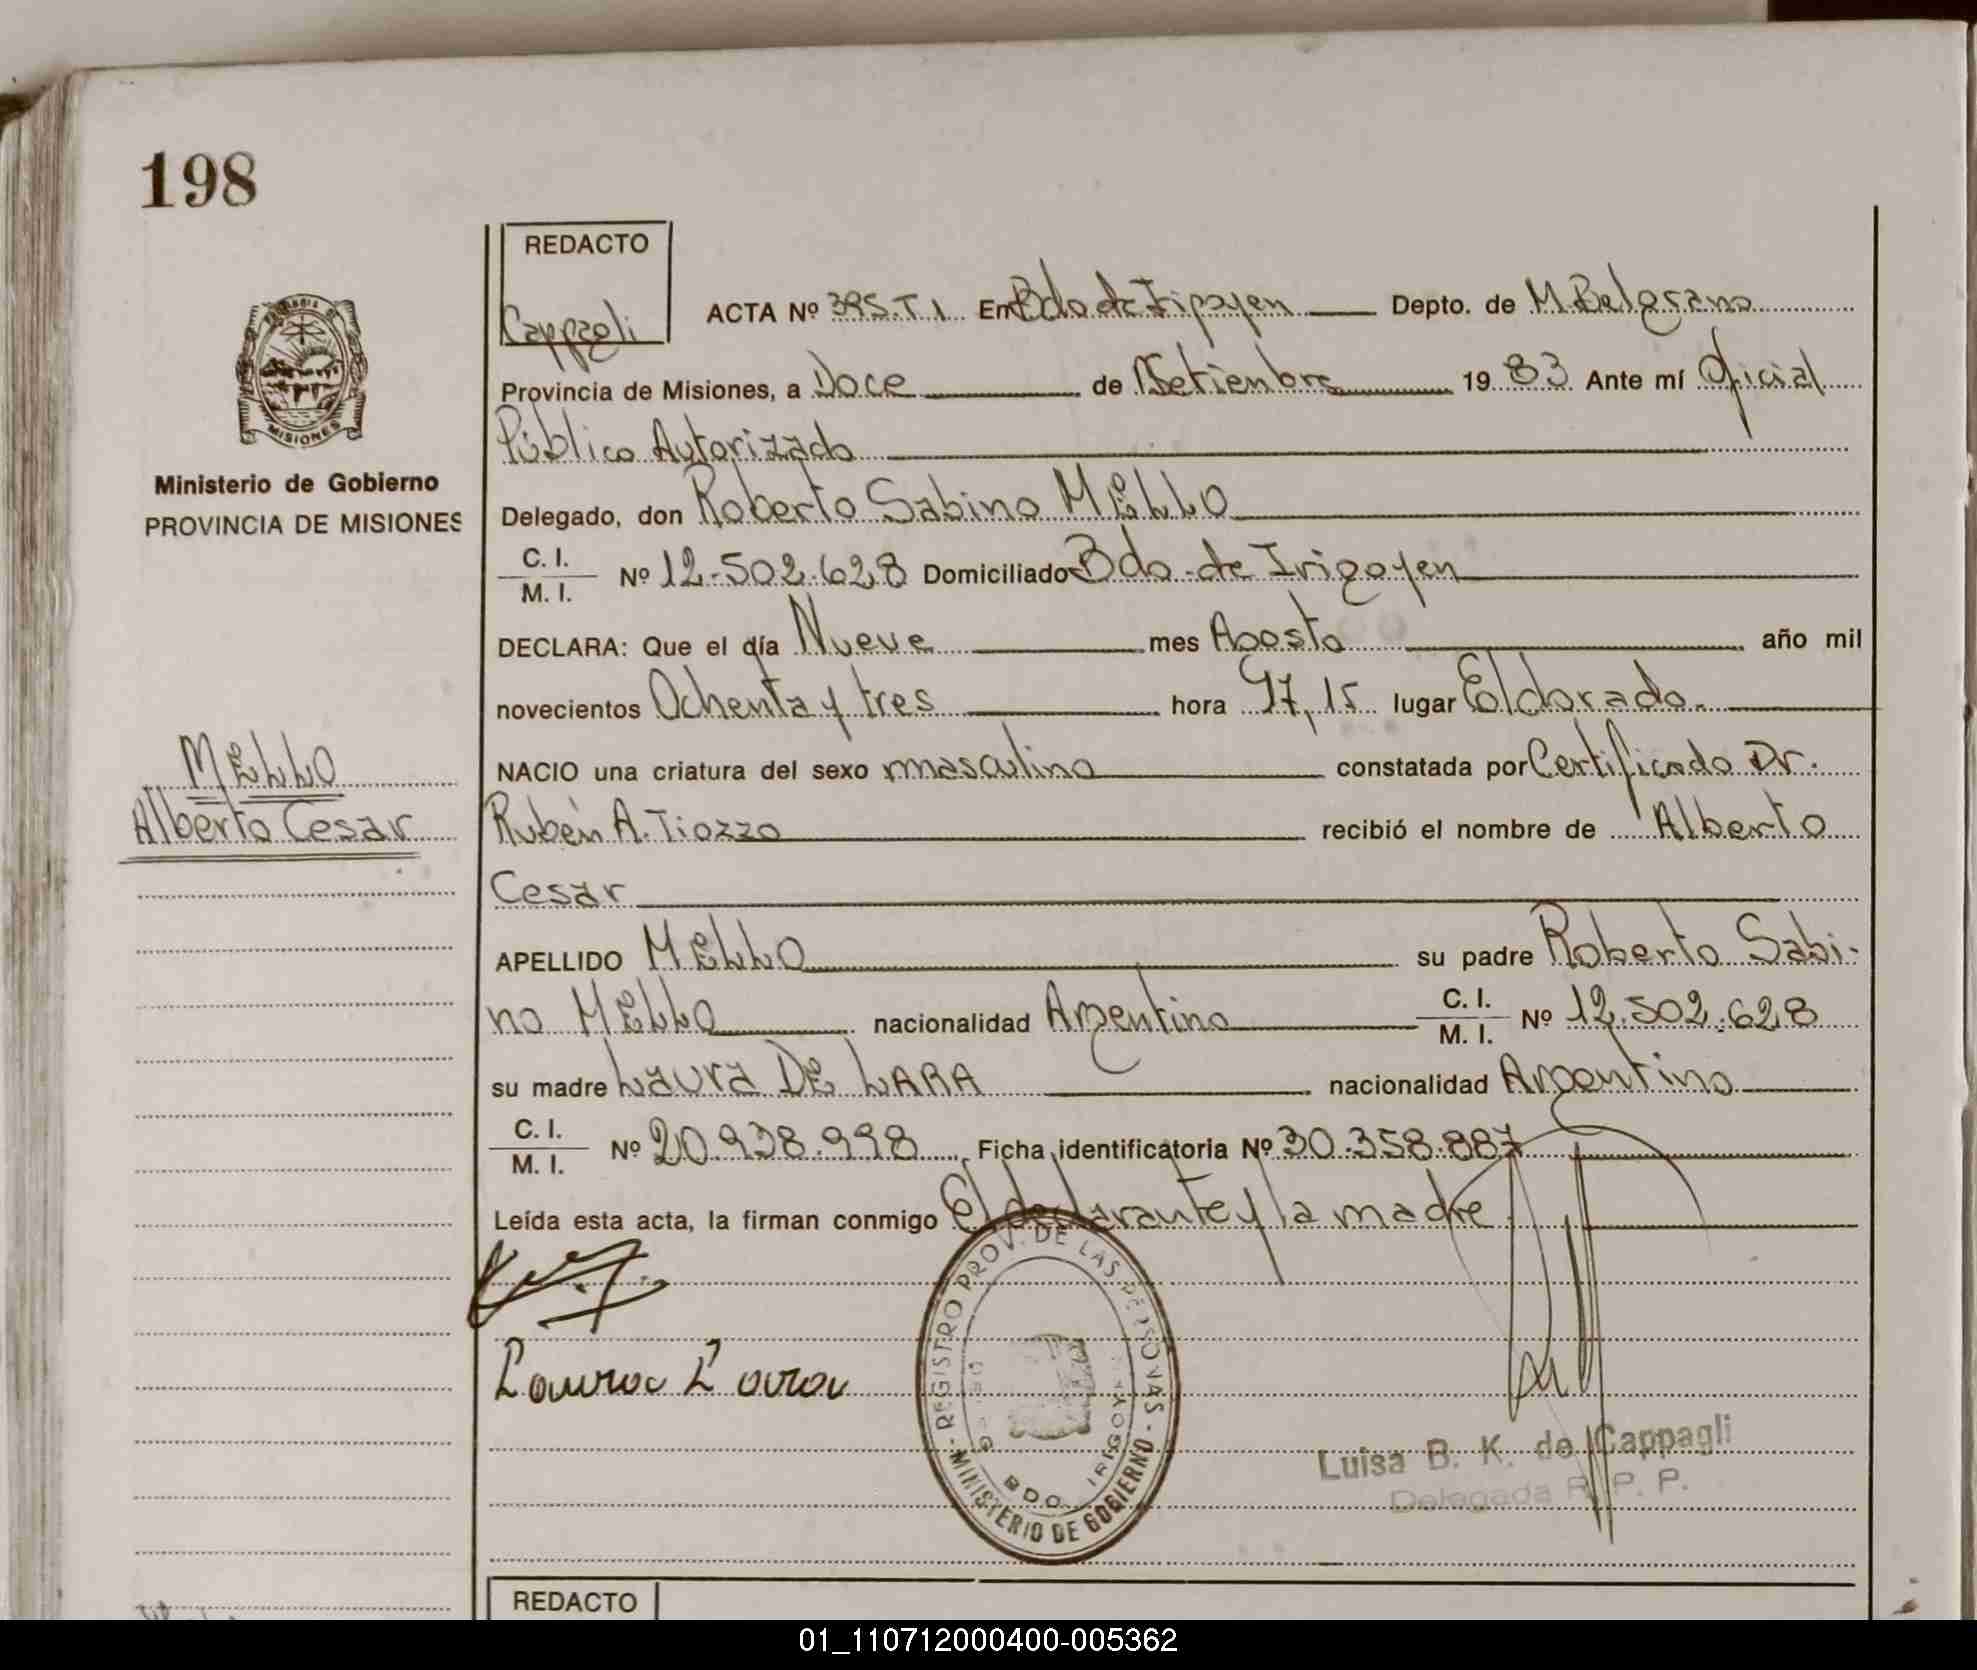 198
REDACTO
Cappagli
ACTA Nº 395.T.I En Bdo de Irigoyen Depto. de M. Belgrano
Provincia de Misiones, a Doce de Setiembre 19 83 Ante mí Oficial
Público Autorizado
Delegado, don Roberto Sabino MELLO
C. I.
M. I. Nº 12.502.628 Domiciliado Bdo. de Irigoyen
DECLARA: Que el día Nueve mes Agosto año mil
novecientos Ochenta y tres hora 17,15 lugar Eldorado.
NACIO una criatura del sexo masculino constatada por Certificado Dr.
Rubén A. Tiozzo recibió el nombre de Alberto
Cesar
APELLIDO MELLO su padre Roberto Sabi-
no MELLO nacionalidad Argentino C. I.
M. I. Nº 12.502.628
su madre Laura DE LARA nacionalidad Argentino
C. I.
M. I. Nº 20.938.998 Ficha identificatoria Nº 30.358.887
Leída esta acta, la firman conmigo El declarante y la madre
MISIONES
Ministerio de Gobierno
PROVINCIA DE MISIONES
MELLO
Alberto Cesar
Laura Lara
REGISTRO PROV. DE LAS PERSONAS
BDO. IRIGOYEN
MINISTERIO DE GOBIERNO
Luisa B. K. de Cappagli
Delegada R. P. P.
REDACTO
01_110712000400-005362